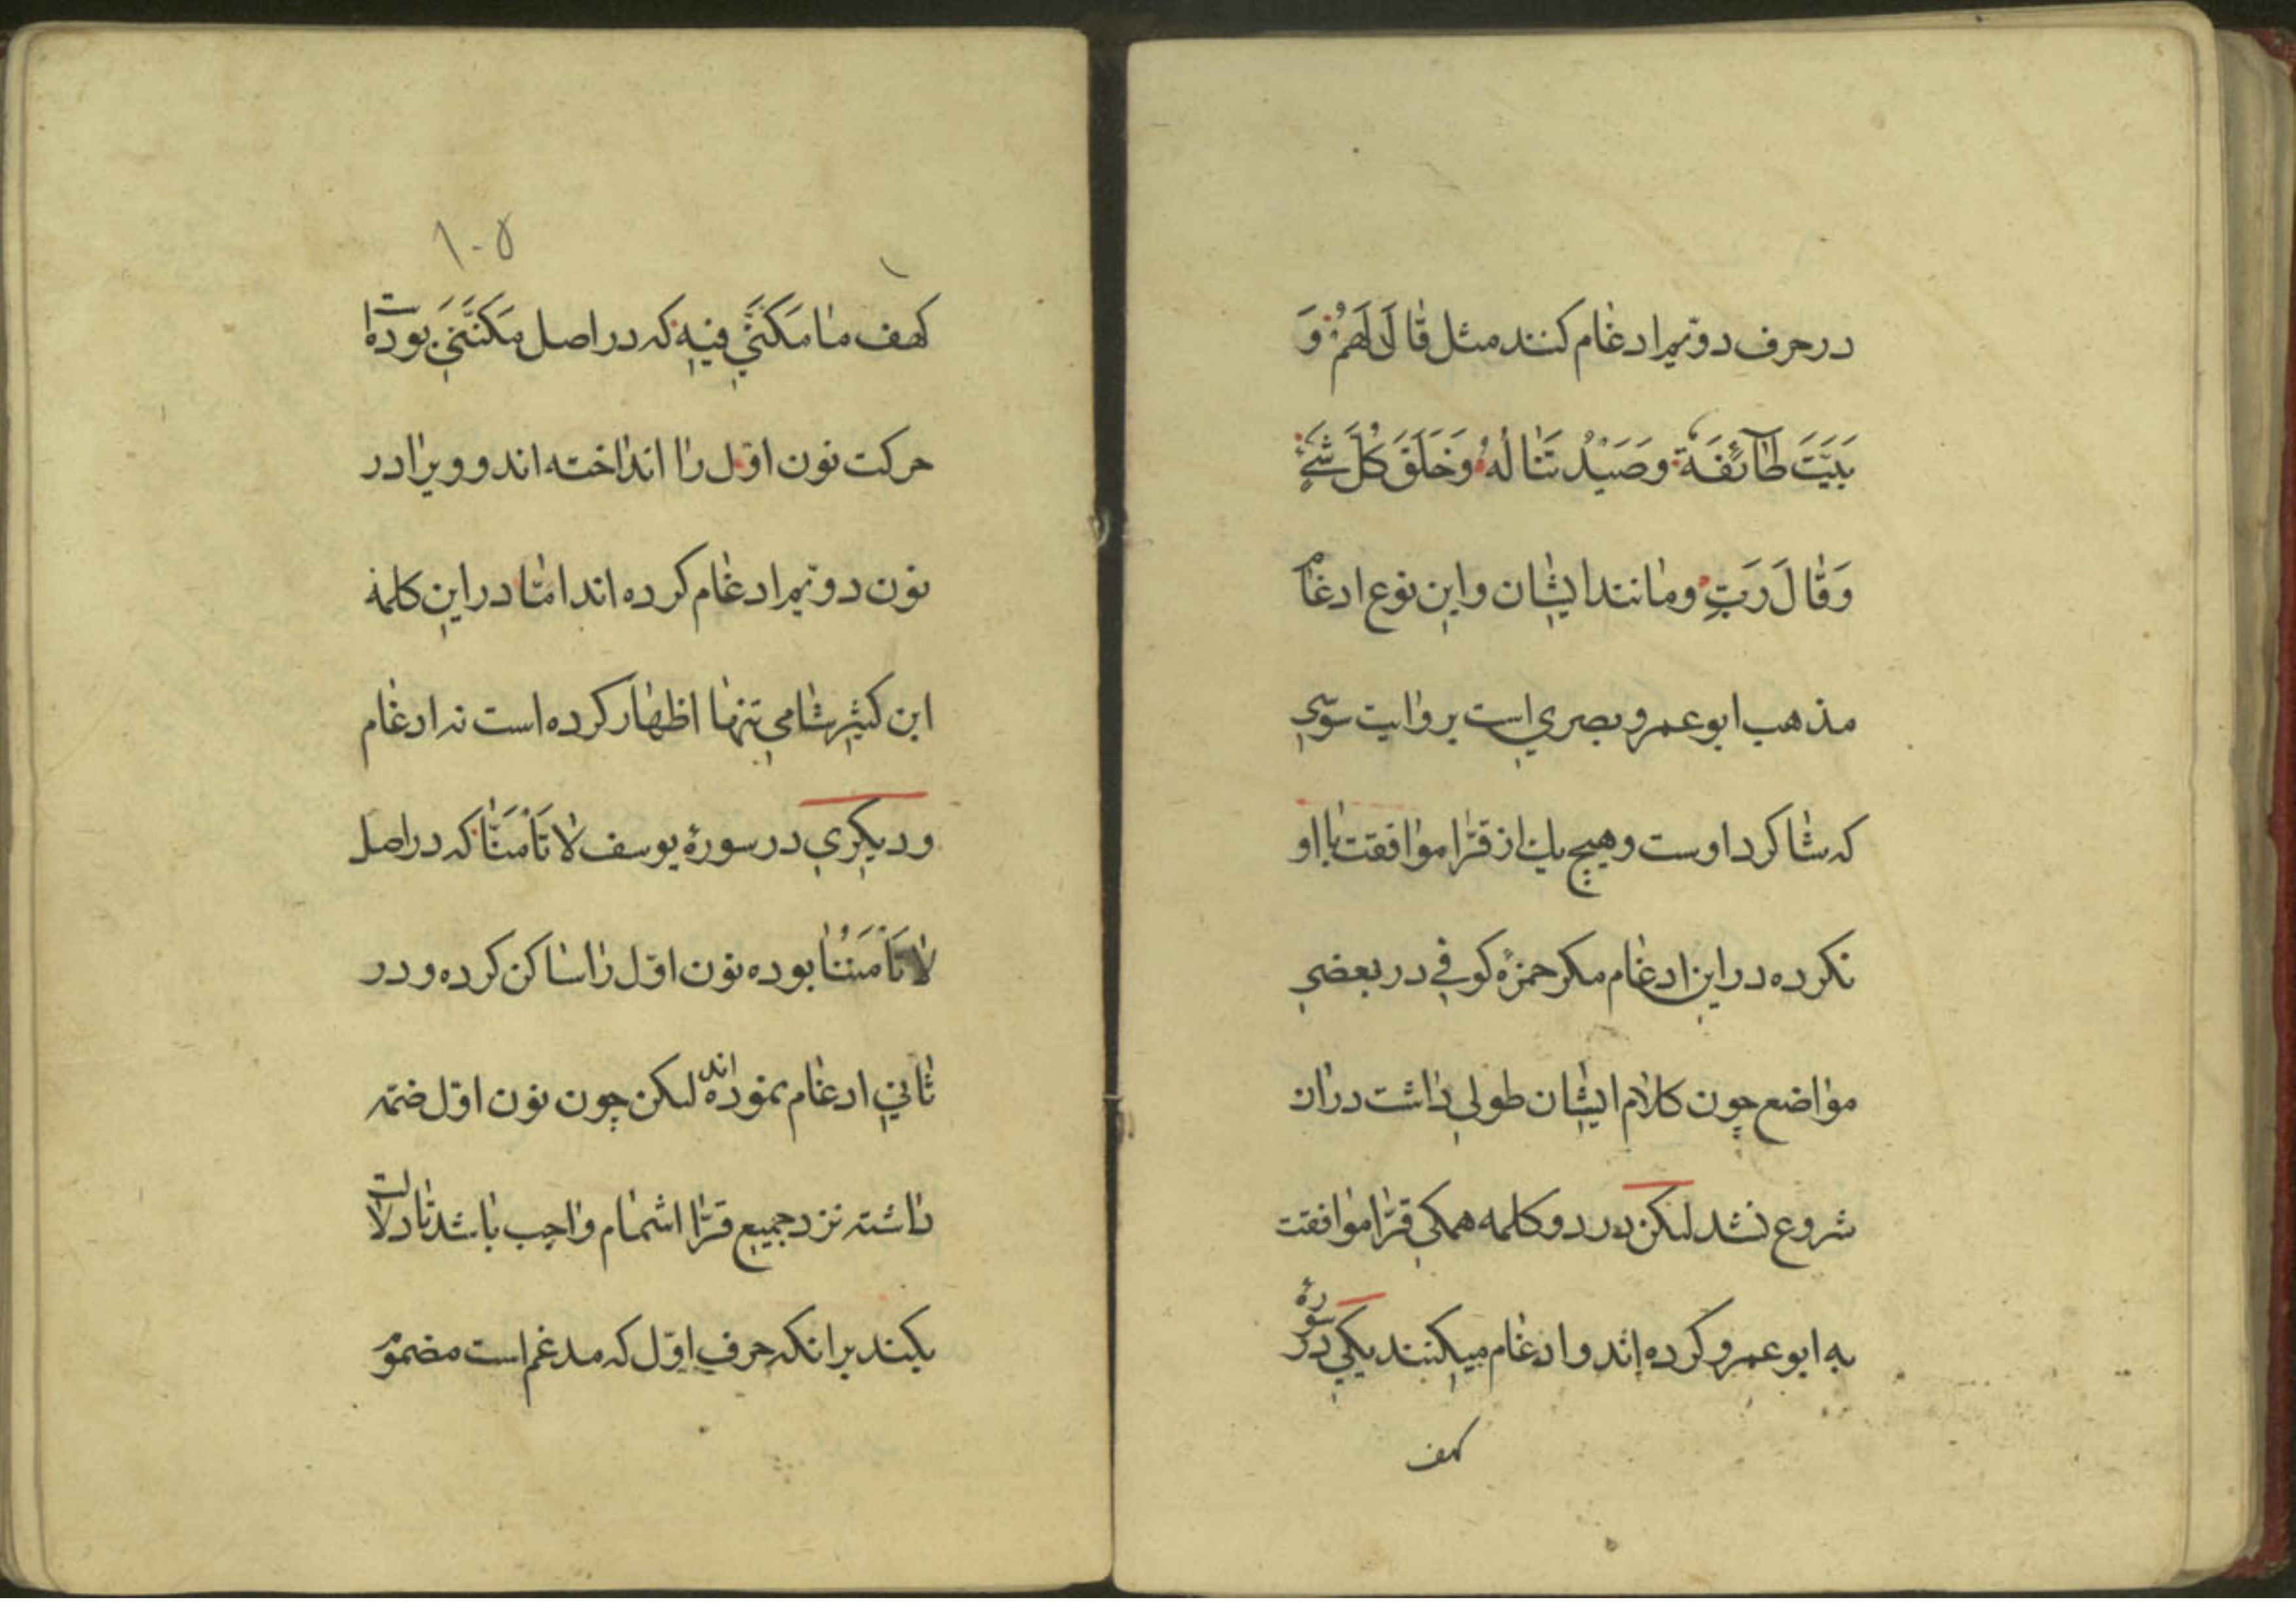 در حرف دویّم ادغام کنند مثل قَالَ لَهُمْ وَ
بَيَّتَ طَآئِفَةٌ وصَيْدٌ تَنَالُهُ وَخَلَقَ كُلَّ شَيْءٍ
وَقَالَ رَبِّ ومانند ایشان واین نوع ادغام
مذهب ابو عمرو بصري است بروایت سوسي
که شاکرد اوست وهیچ یك از قرّا موافقت با او
نکرده در این ادغام مکر حمزهٔ کوفي در بعضي
مواضع چون کلام ایشان طولي داشت در ان
شروع نشد لیکن در دو کلمه همکي قرّا موافقت
به ابو عمرو کرده اند و ادغام میکنند یکي در سورهٔ
کهف
۱۰۵
کهف ما مَكَّنّي فيهِ که در اصل مَكَّنَنِي بوده است
حرکت نون اوّل را انداخته اند و ویرا در
نون دویّم ادغام کرده اند امّا در این کلمه
ابن کثیر شامي تنها اظهار کرده است نه ادغام
ودیکري در سورهٔ یوسف لا تَأْمَنَّا که در اصل
لا تَأْمَنُنَا بوده نون اوّل را ساکن کرده و در
ثاني ادغام نموده اند لیکن چون نون اوّل ضمّه
داشته نزد جمیع قرّا اشمام واجب باشد تا دلالت
بکند بر انکه حرف اوّل که مدغم است مضموم